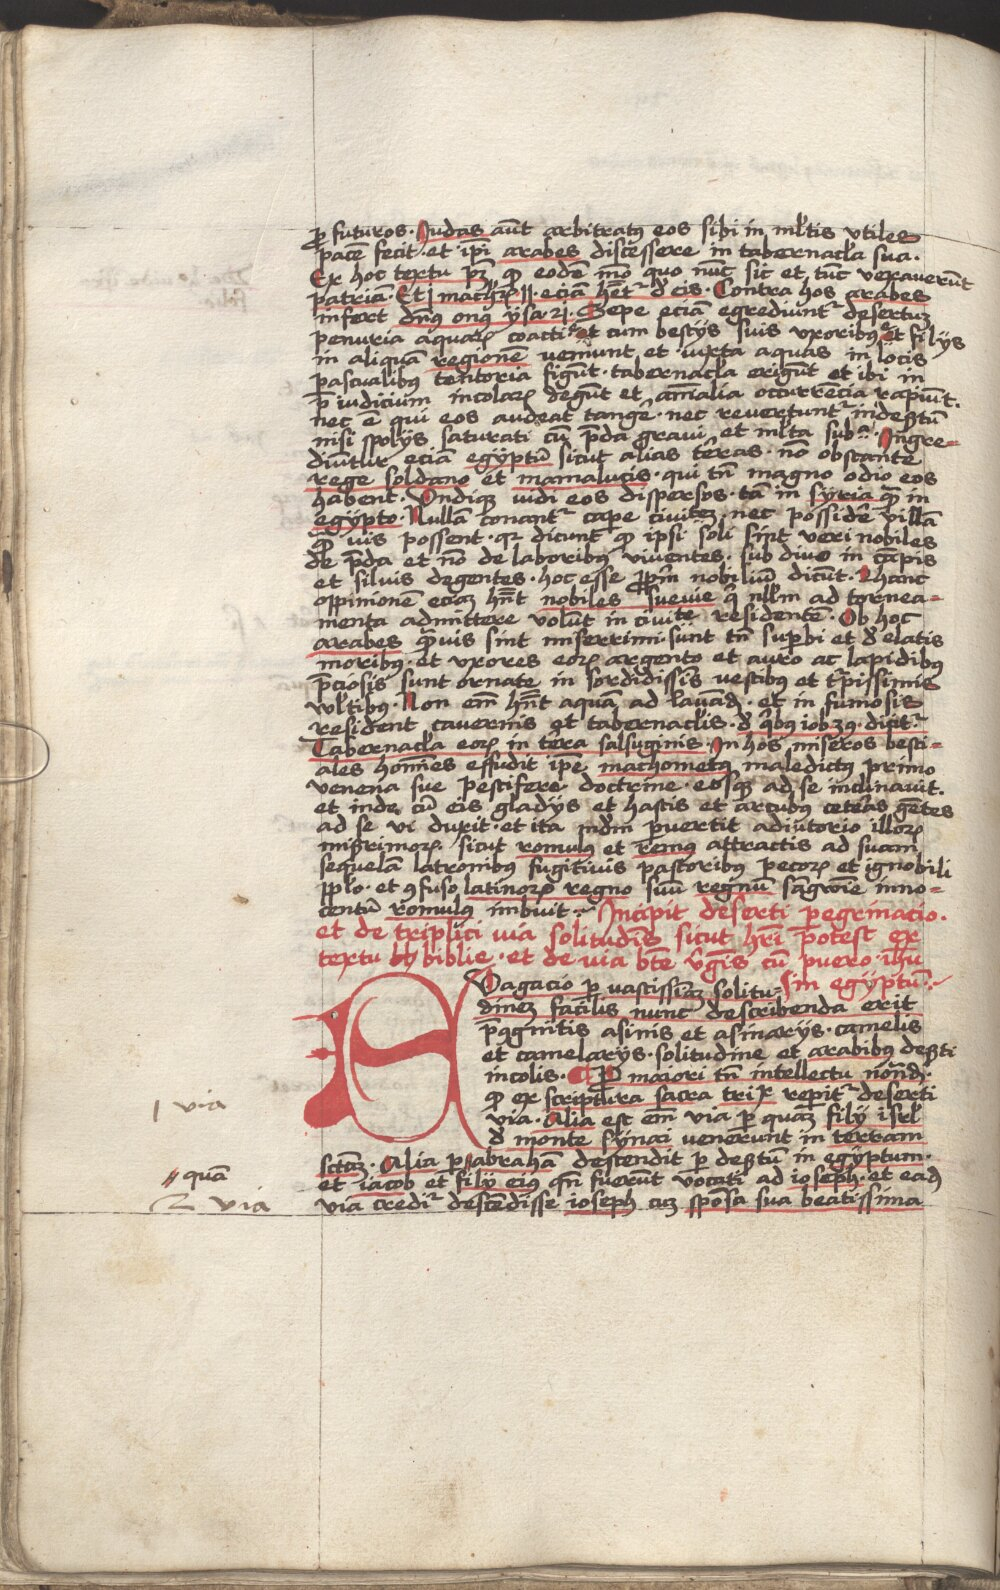 ꝓ futuros. Judas aūt arbitratꝰ eos sibi in ml̄tis vtiles
pacē fecit. et ip̄i arabes discessere in tabernacl̄a sua.
Ex hoc textu pꝫ ꝙ eodē mō quo nūc sic et tūc vexauerūt
patriam. Et j machꝫ. eciā hn̄tᷣ de eis. Contra hos arabes
infert dn̄s onꝰ ysa. 21. Sepe eciā egrediuntᷣ desertuꝫ
penuria aquaꝝ coacti et cum bestijs suis vxoribꝰ et filijs
in aliquā regionē veniunt et iuxta aquas in locis
pascualibꝰ tentoria figūt. tabernacl̄a erigūt et ibi in
p̄iudicium incolaꝝ degūt et aīalia occurrēcia rapiūt.
nec ē qui eos audeat tangē. nec reuertuntᷣ in desꝑtū
nisi spolijs saturati cū p̄da graui et ml̄ta sub.ᵃ. Ingre-
diūtur eciam egyptū sicut alias terras. nō obstante
rege soldano et mamalucis. qui tn̄ magno odio eos
habent. Vndiqꝫ vidi eos dispersos. tā in syria qᷓ in
egypto. Nullā conantᷣ capē ciuitatē. nec possidē villā
qᷓuis possent. qꝛ dicunt ꝙ ipsi soli sint veri nobiles
de p̄da et nō de laboribꝰ viuentes. sub diuo in cāpis
et siluis degentes. hoc esse ꝓpriū nobiliū dicūt. Et hanc
oppinionē eciaꝫ hn̄t nobiles sueuie qͥ nll̄m ad tornea-
menta admittere volūt in ciuitate residentē. Ob hoc
arabes qᷓuis sint miserrimi. sunt tn̄ supbi et de elatis
moribꝰ. et vxores eoꝝ argento et auro ac lapidibꝰ
p̄ciosis sunt ornate in sordidissīs vestibꝰ et tᷣpissimis
vultibꝰ. Non em̄ hn̄t aquam ad lauandū. et in fumosis
resident cauernis et tabernacl̄is. de qͥbꝰ iob 39. dicitᷣ
Tabernacl̄a eoꝝ in terra salsuginis. In hos miseros besti-
ales homīes effudit ip̄e machometꝰ maledictꝰ primo
venena sue pestifere doctrine. eosqꝫ ad se inclinauit.
et inde cū eis gladijs et hastis et arcubꝰ ceteras gētes
ad se vi duxit. et ita mūdm puertit adiutorio illoꝝ
misꝑrimoꝝ. sicut romulus et remꝰ attractis ad suam
sequelam latronibꝰ fugitiuis pastoribꝰ pecoꝝ et ignobili
ppl̄o. et ꝯfuso latinoꝝ regno suū regnū sāgwine inno-
centū romulꝰ imbuit. Incipit deserti pegrinacio.
et de triplici via solitudīs sicut hr̄i potest ex
textu biblie. et de via bt̄e v̓gīs cū puero ihū
in egyptū.
EVagacio p vastissimā solitu-
dinem facilis nunc describenda erit
p̄ꝯgnitis asinis et asinarijs. camelis
et camelarijs. solitudine et arabibꝰ desꝑti
incolis. Pro maiori tn̄ intellectu notandū
ꝙ ex scriptura sacra triplex reperitᷣ deserti
via. Alia est em̄ via p quam filij isrl̄
de monte synai venerunt in terram
sctāꝫ. Alia p abrahā descendit p desꝑtū in egyptum.
et iacob et filij eiꝰ qn̄ fuerūt vocati ad ioseph. et eadē
via creditᷣ descēdisse ioseph cuꝫ sponsa sua beatissima
1 via
quā
2 via